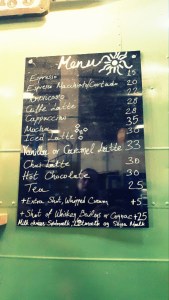 Menu
Espresso 15
Espresso Macchiato/Cortado 20
Americano 22
Caffe Latte 28
Cappuccino 28
Mocha 35
Iced Latte 30
Vanilla or Caramel Latte 33
Chai Latte 30
Hot Chocolate 30
Tea 25
+ Extra Shot, Whipped Cream +5
+ Shot of Whiskey Baileys or Cognac +25